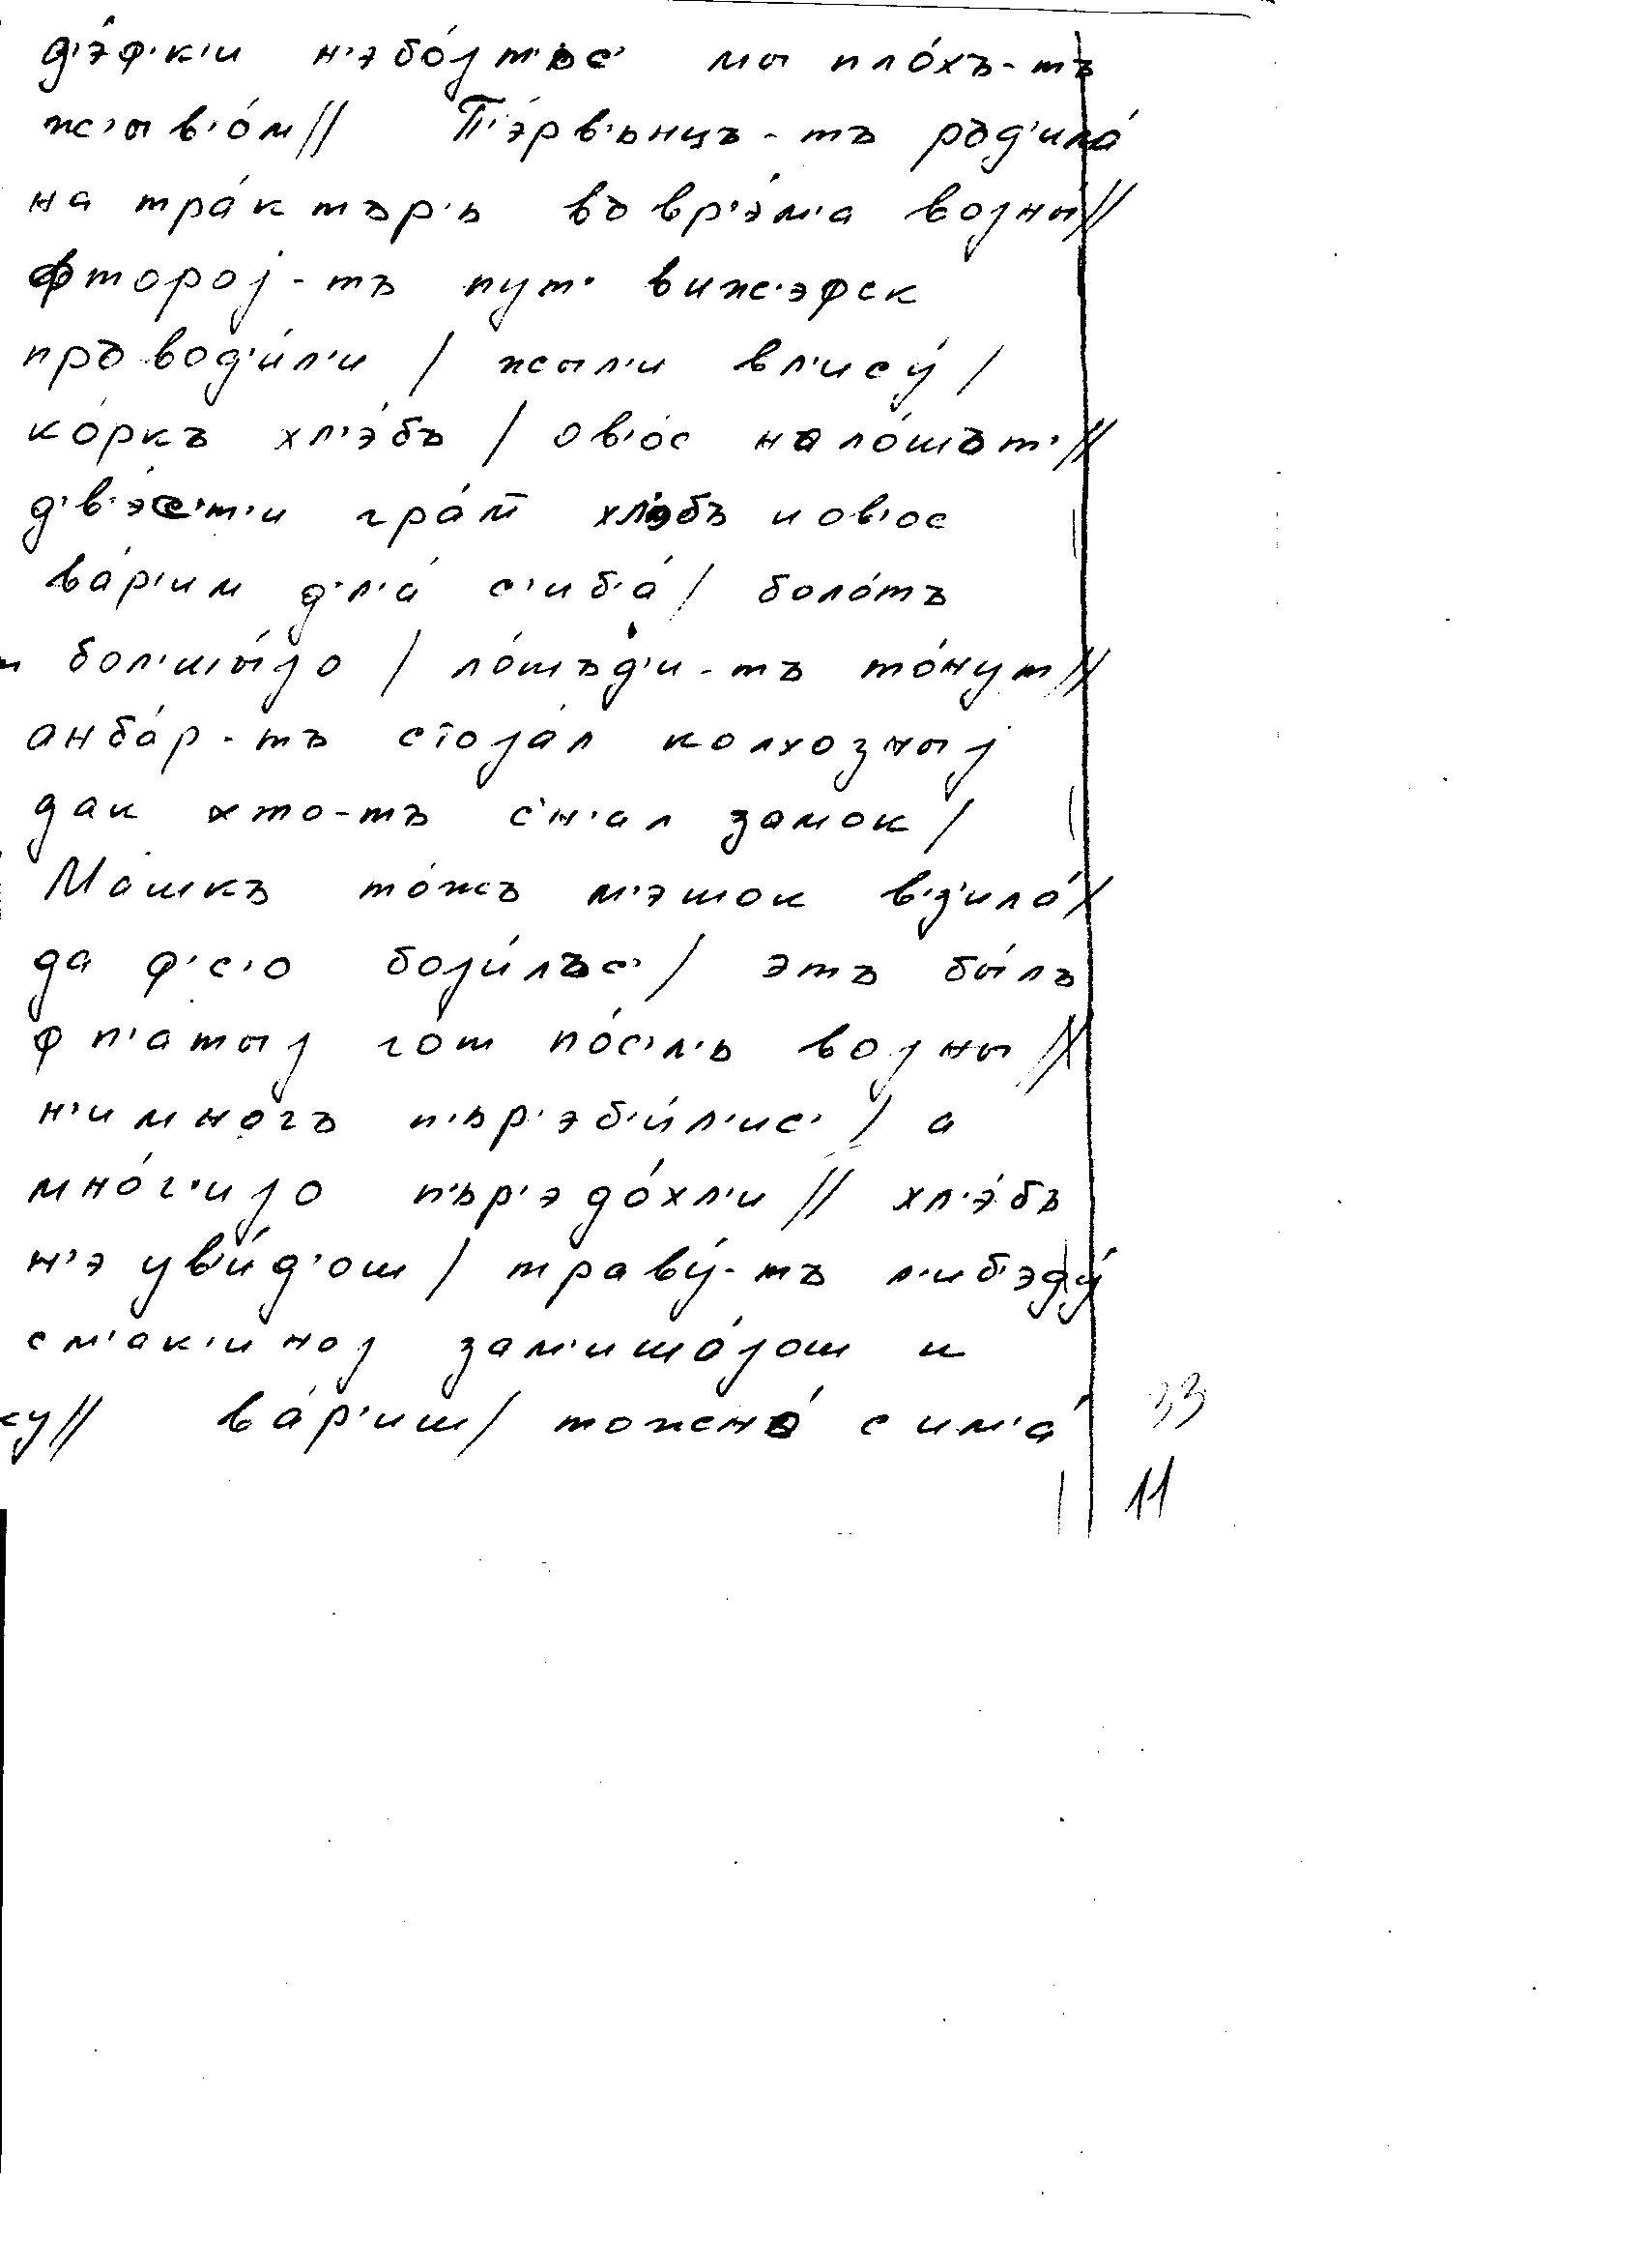 д'э́ф'к'и н'эбо́јт'ьс' мы пло́хъ-тъ
ж'ыв'о́м// П'э́рв'ьнцъ-тъ ръд'ила́
на тра́ктър'ь въвр'э́м'а војны́//
фторој-тъ пут' виж'эфск
пръвод'и́л'и / жыл'и вл'ису́ /
ко́ркъ хл'э́бъ / ов'о́с нало́шът'//
д'в'э́с'т'и гра́м хл'эбъ иов'ос
ва́р'им д'л'а́ с'иб'а́ / боло́тъ
бол'шы́јо / ло́шъд'и-тъ то́нут//
анба́р-тъ стоја́л колхозныј
дак хто-тъ с'н'ал замок /
Ма́шкъ то́жъ м'эшок в'з'ила́/
да ф'с'о боји́лъс' / этъ бы́лъ
фп'атыј го́т по́с'л'ь војны//
н'имногъ п'ьр'эб'и́л'ис' / а
мно́г'ијо п'ьр'эдо́хл'и // хл'э́бъ
н'э уви́д'ош / траву́-тъ л'иб'эду́
см'ак'иној зам'иша́још и
су// ва́р'иш/ тожена́ сим'а́
33
11